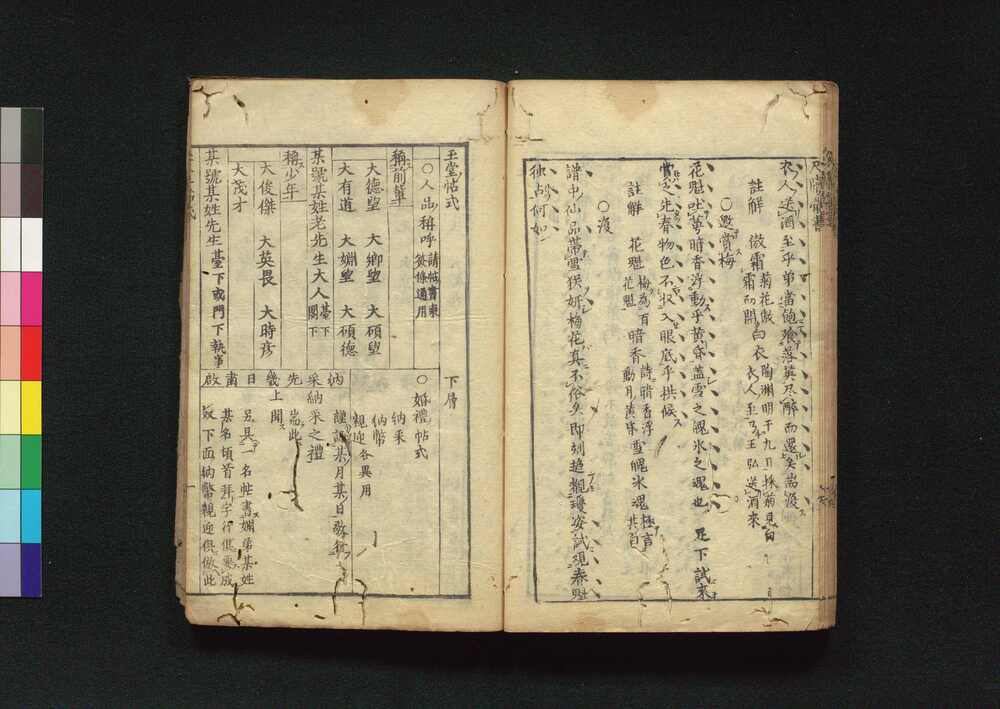 衣人送酒至乎弟當飽飱落英尽醉而還矣耑復
註解 傲霜 菊花傲霜而開 白衣 陶渊明于九日採菊見白衣人至乃王弘送酒来
○邀賞梅
花魁吐萼暗香浮動乎黄昏盖雪之魄氷之魂也 足下試来
賞之先春物色不収入眼底乎拱候
註解 花魁 梅為百花魁 暗香 詩暗香浮動月黄昏 雪魄氷魂 極言其白
○復
譜中仙品帶雪族妍梅花真不俗矣即刻趋觀瓊姿試覘春魁
独占何如
玉堂帖式
○人品稱呼 請帖書柬簽條通用
稱前輩
大德望 大鄉望 大碩望
大有道 大淵望 大碩德
某號某姓老先生大人 臺下 閣下
稱少年
大俊傑 大英畏 大時彦
大茂才
某號某姓先生臺下或門下執事
下層
○婚禮帖式
納采
納幣
親迎 各異用
謹詹某月某日敬行
納采之禮
耑此
上聞
納采先幾日肅啟
另具一名帖書姻弟某姓
某名頓首拜字行俱要成
双下面納幣親迎俱倣此